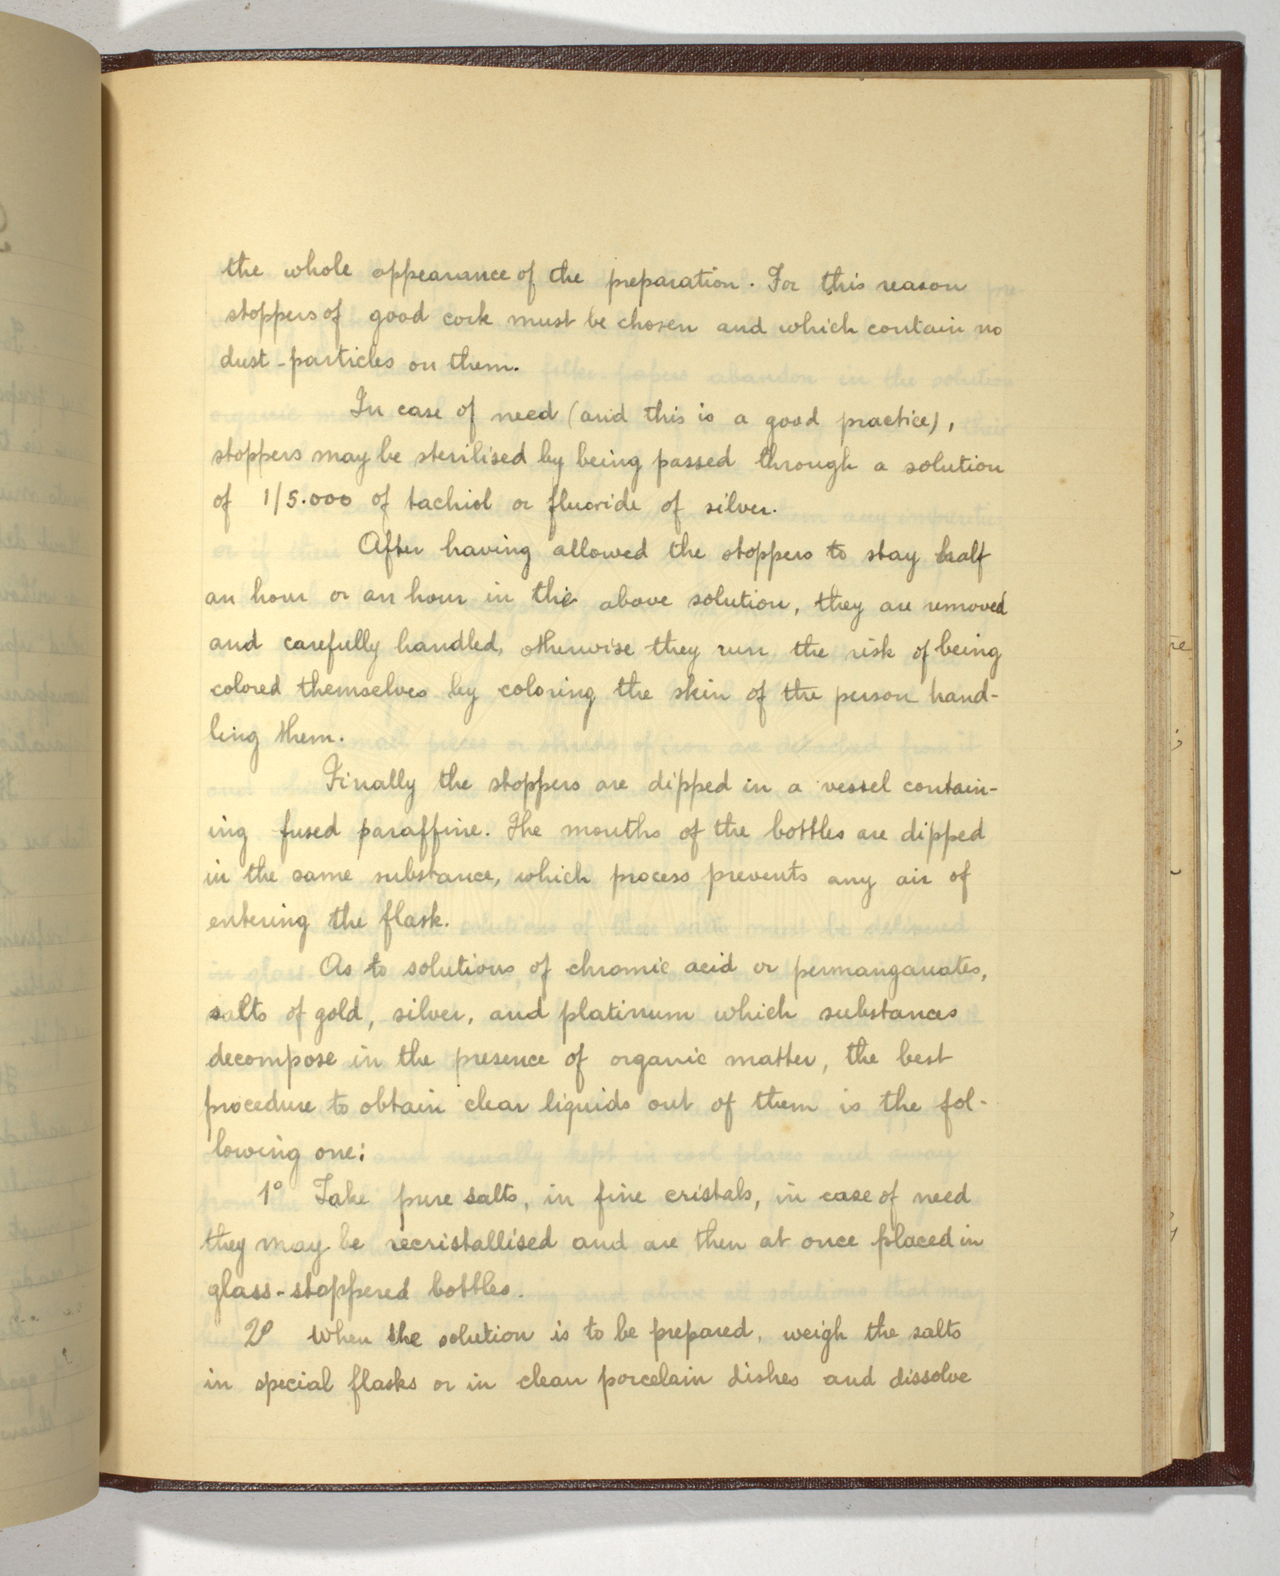 the whole appearance of the preparation. For this reason
stoppers of good cork must be chosen and which contain no
dust-particles on them.
In case of need (and this is a good practice),
stoppers may be sterilised by being passed through a solution
of 1/5.000 of tachiol or fluoride of silver.
After having allowed the stoppers to stay half
an hour or an hour in the above solution, they are removed
and carefully handled, otherwise they run the risk of being
colored themselves by coloring the skin of the person hand-
ling them.
Finally the stoppers are dipped in a vessel contain-
ing fused paraffine. The mouths of the bottles are dipped
in the same substance, which process prevents any air of
entering the flask.
As to solutions of chromic acid or permanganates,
salts of gold, silver, and platinum which substances
decompose in the presence of organic matter, the best
procedure to obtain clear liquids out of them is the fol-
lowing one:
1º Take pure salts, in fine cristals, in case of need
they may be recristallised and are then at once placed in
glass-stoppered bottles.
2º When the solution is to be prepared, weigh the salts
in special flasks or in clean porcelain dishes and dissolve